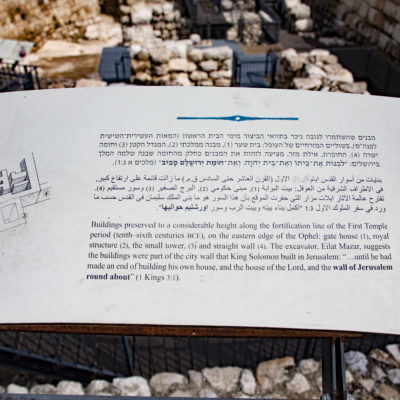 מבנים שהשתמרו לגובה ניכר בתוואי הביצור מימי הבית הראשון (המאות העשירית-השישית
לפנה"ס), בשוליים המזרחיים של העופל: בית שער (1), מבנה מלכותי (2), המגדל הקטן (3) וחומה
ישרה (4). החופרת, אילת מזר, מציעה לזהות את המבנים כחלק מהחומה שבנה שלמה המלך
בירושלים: "לבנות את-ביתו ואת-בית יהוה, ואת-חומת ירושלם סביב" (מלכים א ג:1).
بنايات من أسوار القدس أيام الاول (القرن العاشر حتى السادس ق.م.) ما زالت قائمة على ارتفاع كبير،
في الاطراف الشرقية من العوفل: بيت البوابة (1)، مبنى حكومي (2)، البرج الصغير (3) وسور مستقيم (4).
تقترح عالمة الآثار ايلات مزار التي حفرت الموقع بأن هذا السور هو ما بنى الملك سليمان في القدس حسب ما
ورد في سفر الملوك الاول 1:3 "أكمل بناء بيته وبيت الرب وسور اورشليم حواليها".
Buildings preserved to a considerable height along the fortification line of the First Temple
period (tenth–sixth centuries BCE), on the eastern edge of the Ophel: gate house (1), royal
structure (2), the small tower, (3) and straight wall (4). The excavator, Eilat Mazar, suggests
the buildings were part of the city wall that King Solomon built in Jerusalem: "…until he had
made an end of building his own house, and the house of the Lord, and the wall of Jerusalem
round about" (1 Kings 3:1).